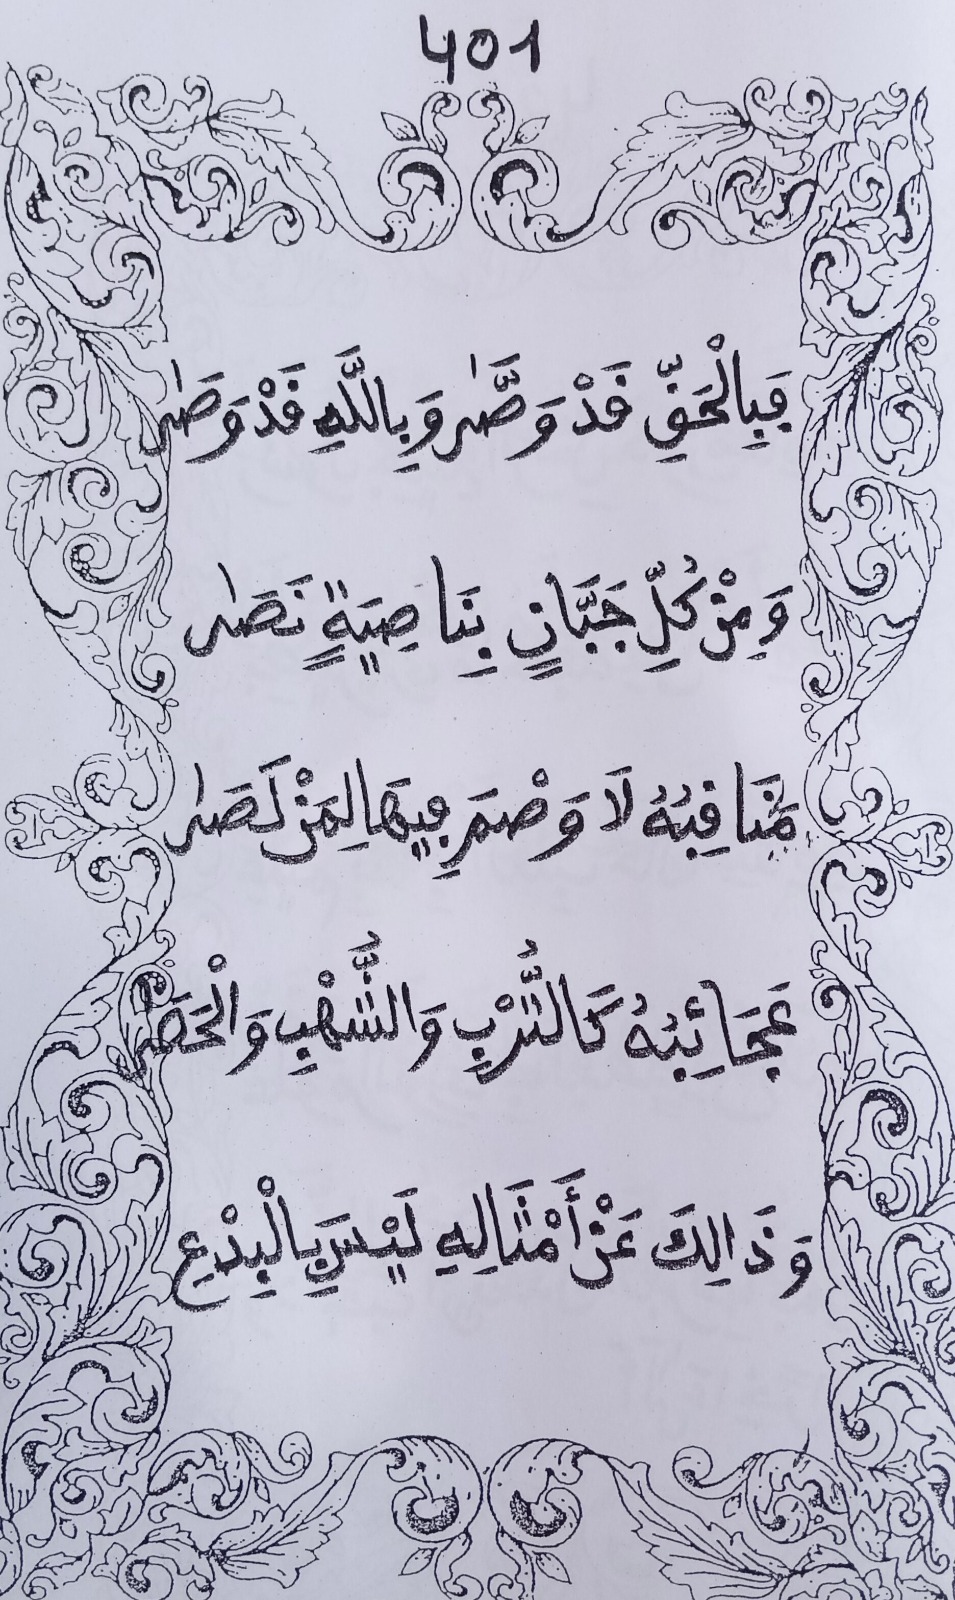 401
فَبِالْحَقِّ قَدْ وَصَّىٰ وَبِاللَّهِ قَدْ وَصَىٰ
وَمِنْ كُلِّ جَبَّانٍ بِنَاصِيَةٍ نَصَىٰ
مَنَاقِبُهُ لَا وَصْمَ فِيهَا لِمَنْ لَصَىٰ
عَجَائِبُهُ كَالتُّرْبِ وَالشُّهْبِ وَالْحَصَىٰ
وَذَالِكَ عَنْ أَمْثَالِهِ لَيْسَ بِالْبِدْعِ